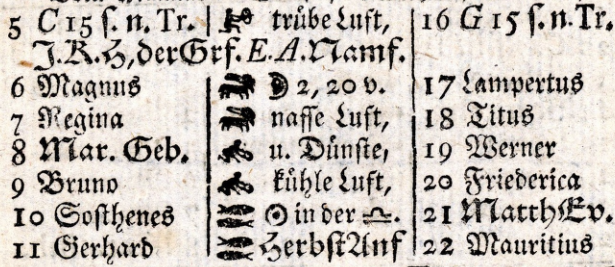 5 C 15 ſ. n. Tr. trübe Luft, 16 G 15 ſ. n. Tr.
J. K. H, der Grf. E. A. Namſ.
6 Magnus ☽ 2, 20 v. 17 Lampertus
7 Regina naſſe Luft, 18 Titus
8 Mar. Geb. u. Dünſte, 19 Werner
9 Bruno kühle Luft, 20 Friederica
10 Soſthenes ☉ in der ♎. 21 Matth Ev.
11 Gerhard Herbſt Anf 22 Mauritius